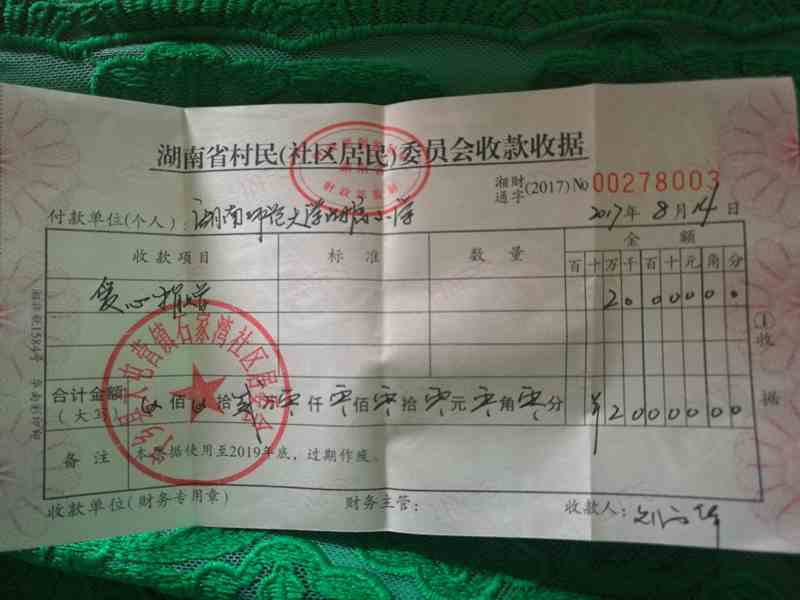 湖南省村民(社区居民)委员会收款收据
湘财通字(2017)No 00278003
付款单位(个人): 湖南师范大学附属小学 2017年8月14日
收款项目 标准 数量 金额
百 十 万 千 百 十 元 角 分
爱心捐赠 2 0 0 0 0 0 0
合计金额(大写) 佰 拾 贰万零仟零佰零拾零元零角零分 ¥2000000
备注 本票据使用至2019年底,过期作废。
收款单位(财务专用章) 财务主管: 收款人:
①收据
大屯营镇石家湾社区居